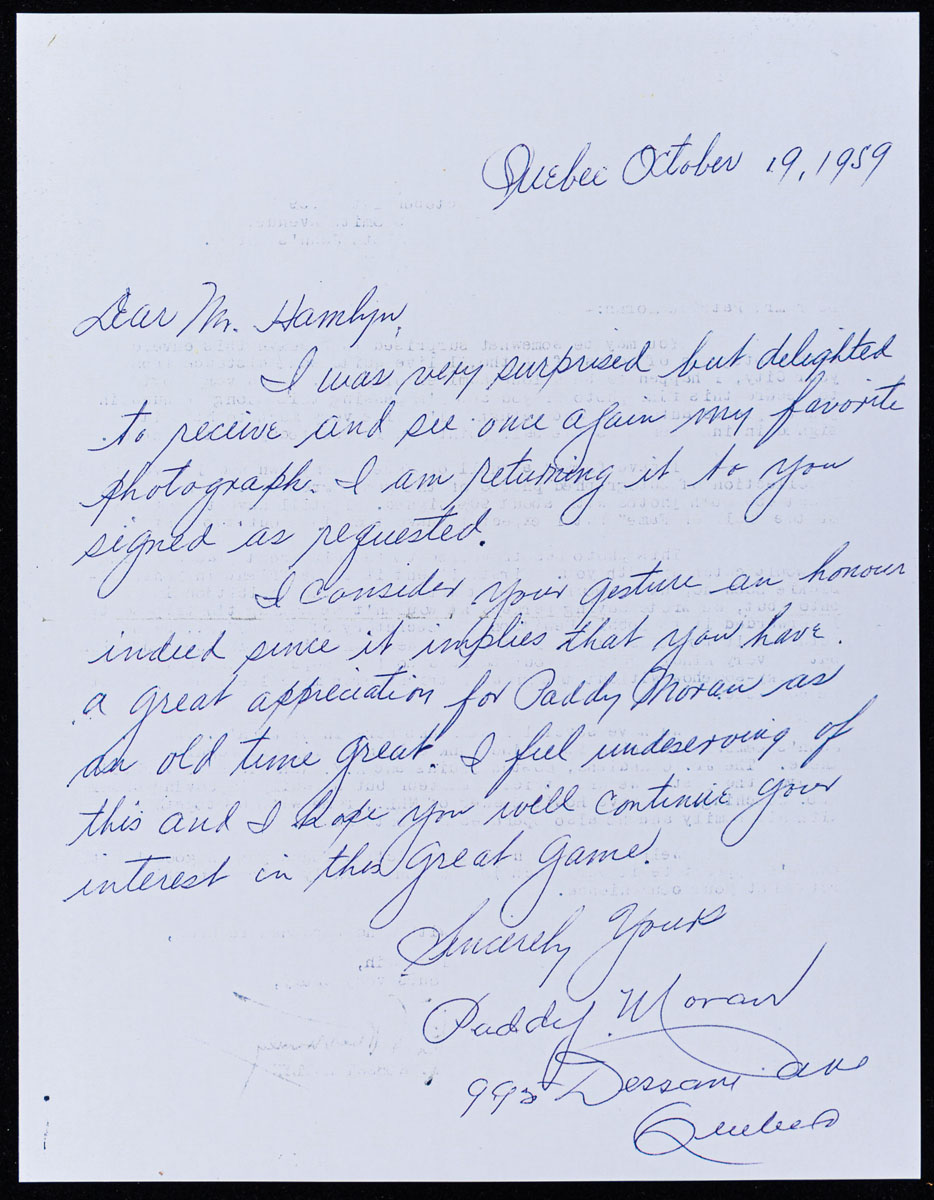 Quebec October 19, 1959
Dear Mr. Hamlyn,
I was very surprised but delighted
to receive and see once again my favorite
photograph. I am returning it to you
signed as requested.
I consider your gesture an honour
indeed since it implies that you have
a great appreciation for Paddy Moran as
an old time great. I feel undeserving of
this and I hope you will continue your
interest in this great game.
Sincerely Yours
Paddy Moran
Ave
Quebec